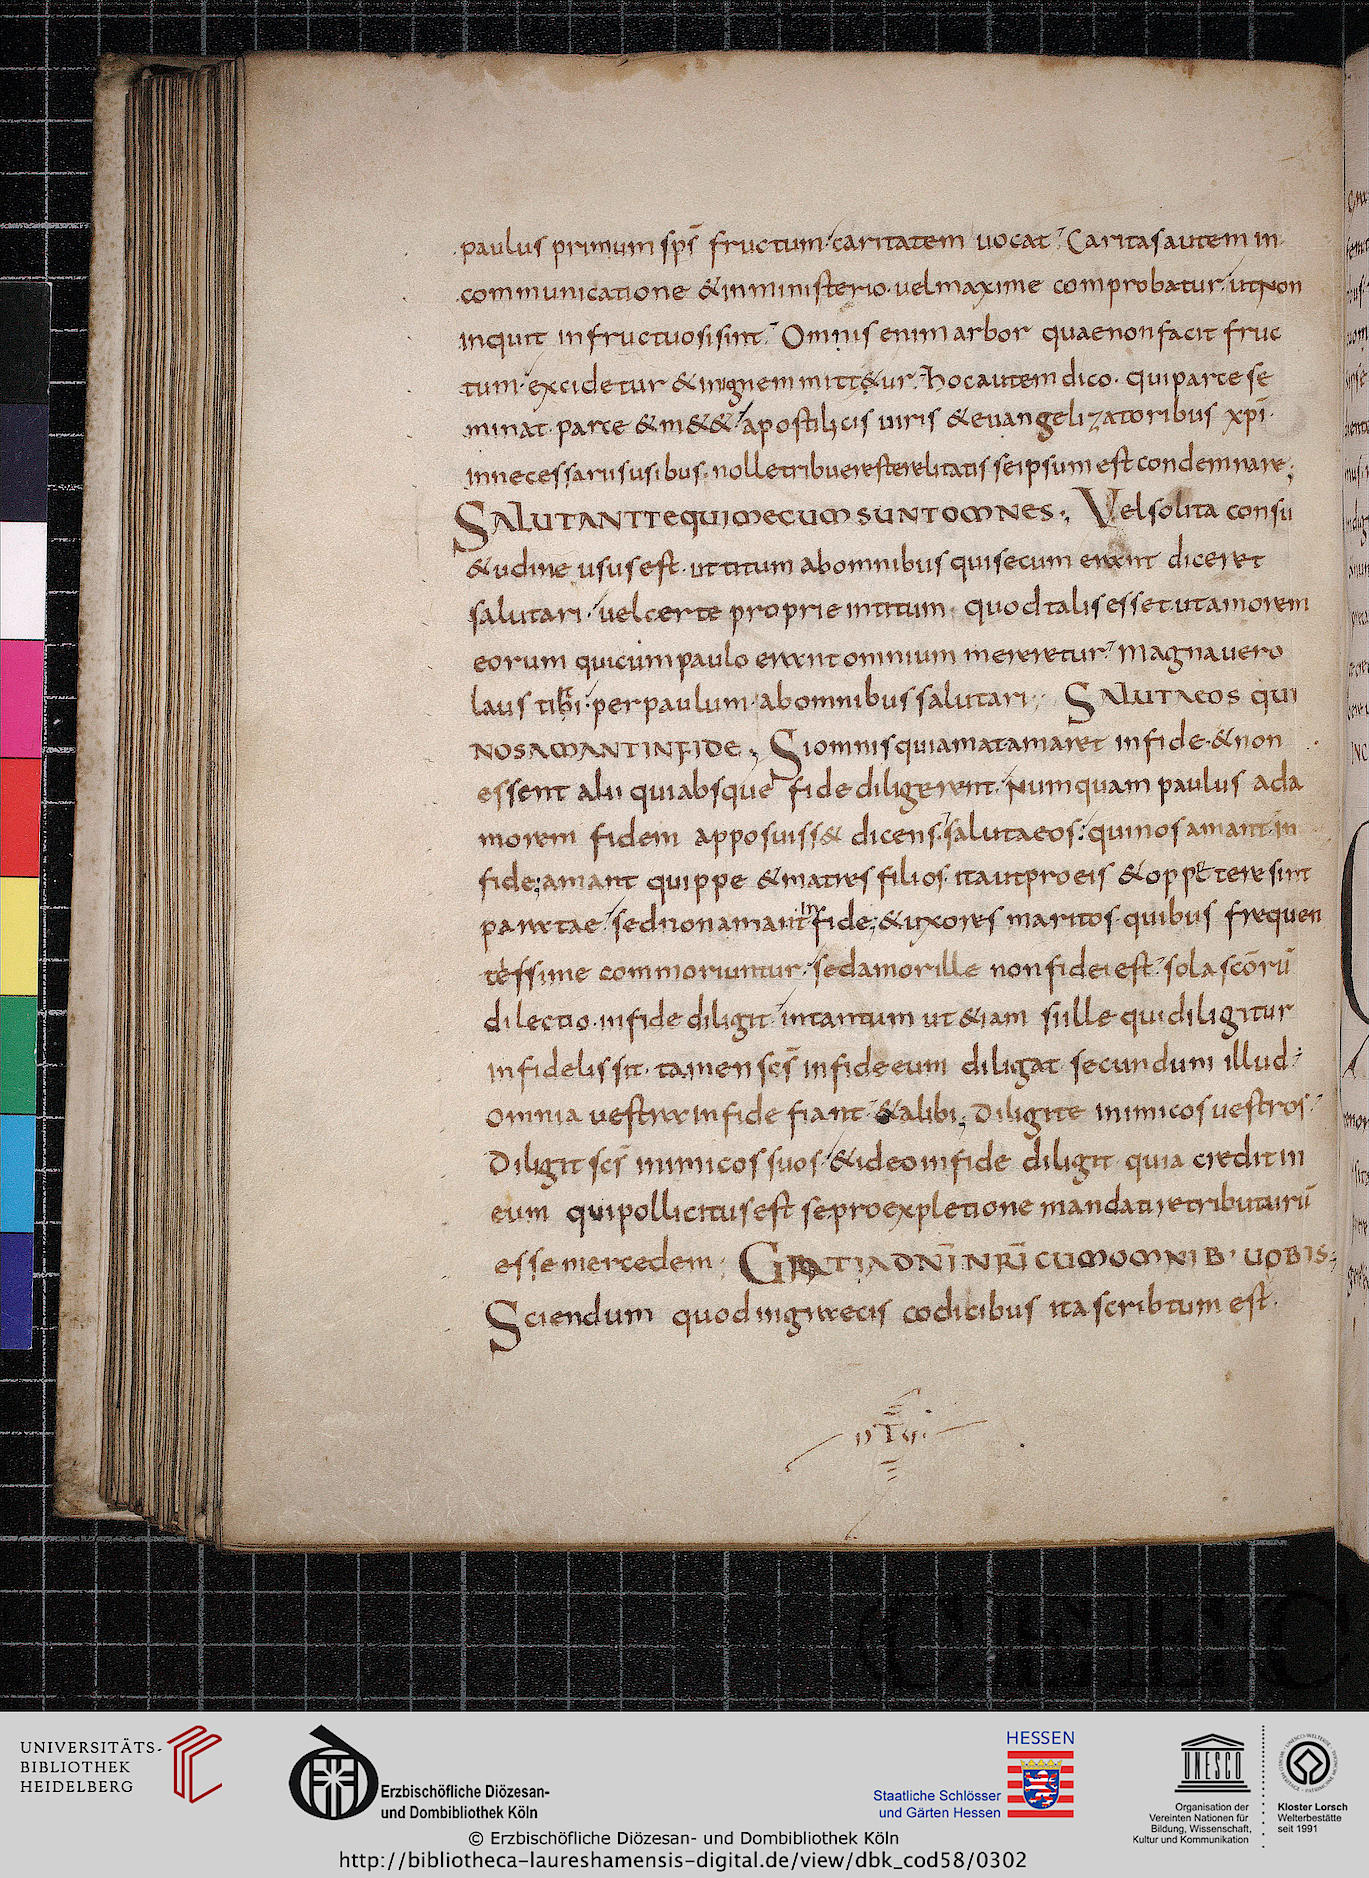 paulus primum sps̄ fructum caritatem uocat. Caritas autem in
communicatione & in ministerio uel maxime comprobatur. ut non
inquit infructuosi sint. Omnis enim arbor quae non facit fruc
tum excidetur & in ignem mitt&ur. hoc autem dico. qui parce se
minat. parce & m&& apostolicis uiris & euangelizatoribus xpī.
in necessariis usibus. nolle tribuere sterelitatis seipsum est condemnare;
SALUTANT TE QUI MECUM SUNT OMNES; Vel solita consu
&udine usus est. ut titum ab omnibus qui secum erant diceret
salutari. uel certe proprie in titum. quod talis esset ut amorem
eorum qui cum paulo erant omnium mereretur. magna uero
laus titi per paulum ab omnibus salutari; SALUTA EOS QUI
NOS AMANT IN FIDE; Si omnis qui amat amaret in fide & non
essent alii qui absque fide diligerent. Numquam paulus ad a
morem fidem apposuiss& dicens. saluta eos. qui nos amant in
fide; amant quippe & matres filios. ita ut pro eis & oppetere sint
paratae sed non amant in fide; & uxores maritos quibus frequen
tessime commoriuntur. sed amor ille non fidei est. sola scōrū
dilectio in fide diligit. in tantum ut &iam si ille qui diligitur
infidelis sit. tamen scs̄ in fide eum diligat secundum illud
omnia uestra in fide fiant. & alibi; Diligite inimicos uestros.
Diligit scs̄ inimicos suos. & ideo in fide diligit quia credit in
eum qui pollicitus est se pro expletione mandati retributurū
esse mercedem; GRATIA DNĪ NRĪ CUM OMNIB' UOBIS;
Sciendum quod in grecis codicibus ita scribtum est.
UNIVERSITÄTS-
BIBLIOTHEK
HEIDELBERG
Erzbischöfliche Diözesan-
und Dombibliothek Köln
HESSEN
Staatliche Schlösser
und Gärten Hessen
UNESCO
Organisation der
Vereinten Nationen für
Bildung, Wissenschaft,
Kultur und Kommunikation
Kloster Lorsch
Welterbestätte
seit 1991
© Erzbischöfliche Diözesan- und Dombibliothek Köln
http://bibliotheca-laureshamensis-digital.de/view/dbk_cod58/0302